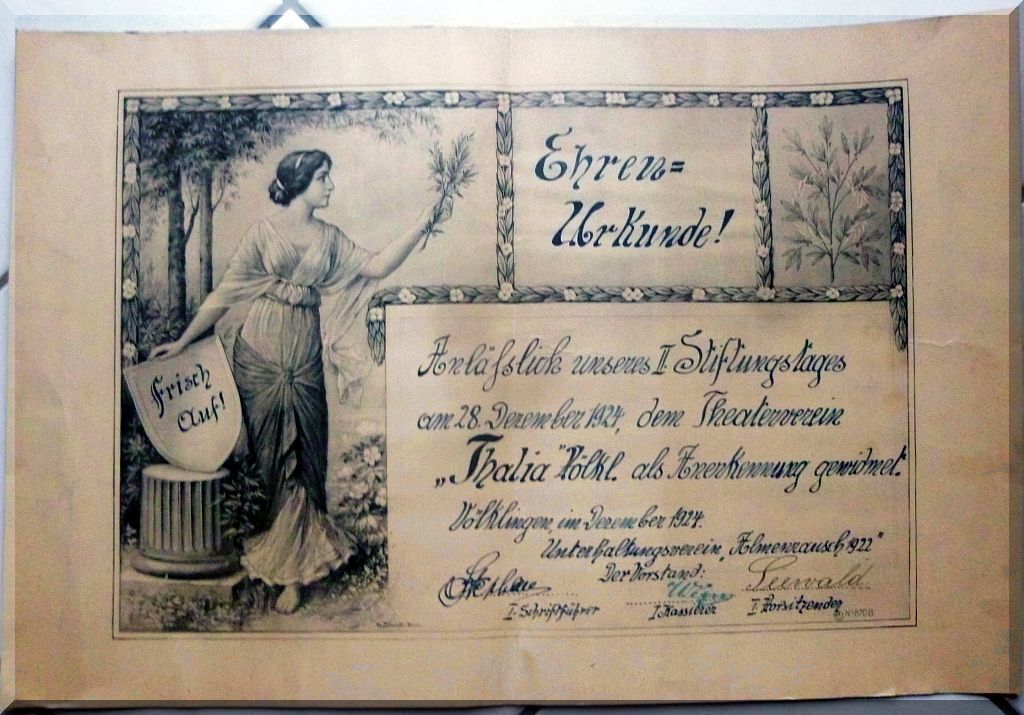 Ehren=
Urkunde!
Frisch
Auf!
Anläßslich unseres II. Stiftungstages
am 28. Dezember 1924, dem Theaterverein
„Thalia" Völkl. als Anerkennung gewidmet.
Völklingen, im Dezember 1924.
Unterhaltungsverein „Almenrausch 1922"
Der Vorstand:
Seewald
I. Schriftführer I Kassierer I. Vorsitzender
No 870 B